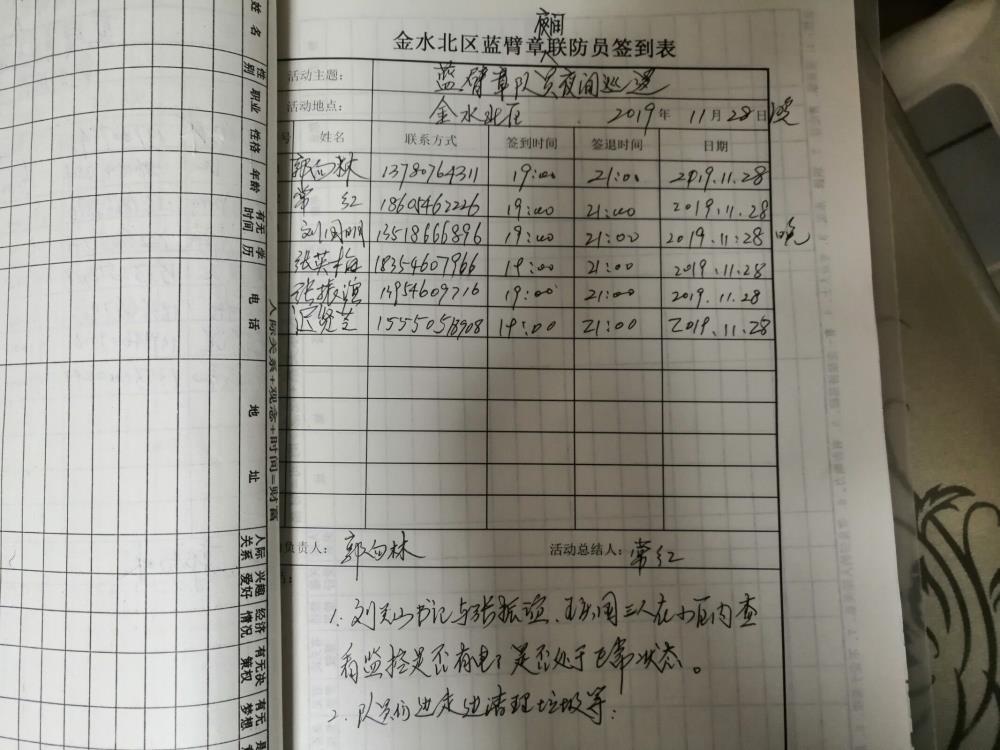 夜间
金水北区蓝臂章联防员签到表
活动主题： 蓝臂章队员夜间巡逻
活动地点： 金水北区 2019年 11月28日晚
号 姓名 联系方式 签到时间 签退时间 日期
郭向林 13780764311 19:00 21:00 2019.11.28
常红 18605462226 19:00 21:00 2019.11.28
刘国明 13518666896 19:00 21:00 2019.11.28 晚
张英梅 18354607966 19:00 21:00 2019.11.28
张振谊 54609716 19:00 21:00 2019.11.28
贤芝 15550518908 19:00 21:00 2019.11.28
负责人： 郭向林 活动总结人： 常红
1. 刘 山书记与张振谊、 国三人在小区内查
看监控是否有电，是否处于正常状态。
2. 队员们边走边清理垃圾等；
姓名
性别
职业
性格
年龄
有无时间
学历
电话
地址
人际关系
兴趣爱好
经济情况
有无决策权
有无梦想
人际关系+观念+时间=财富